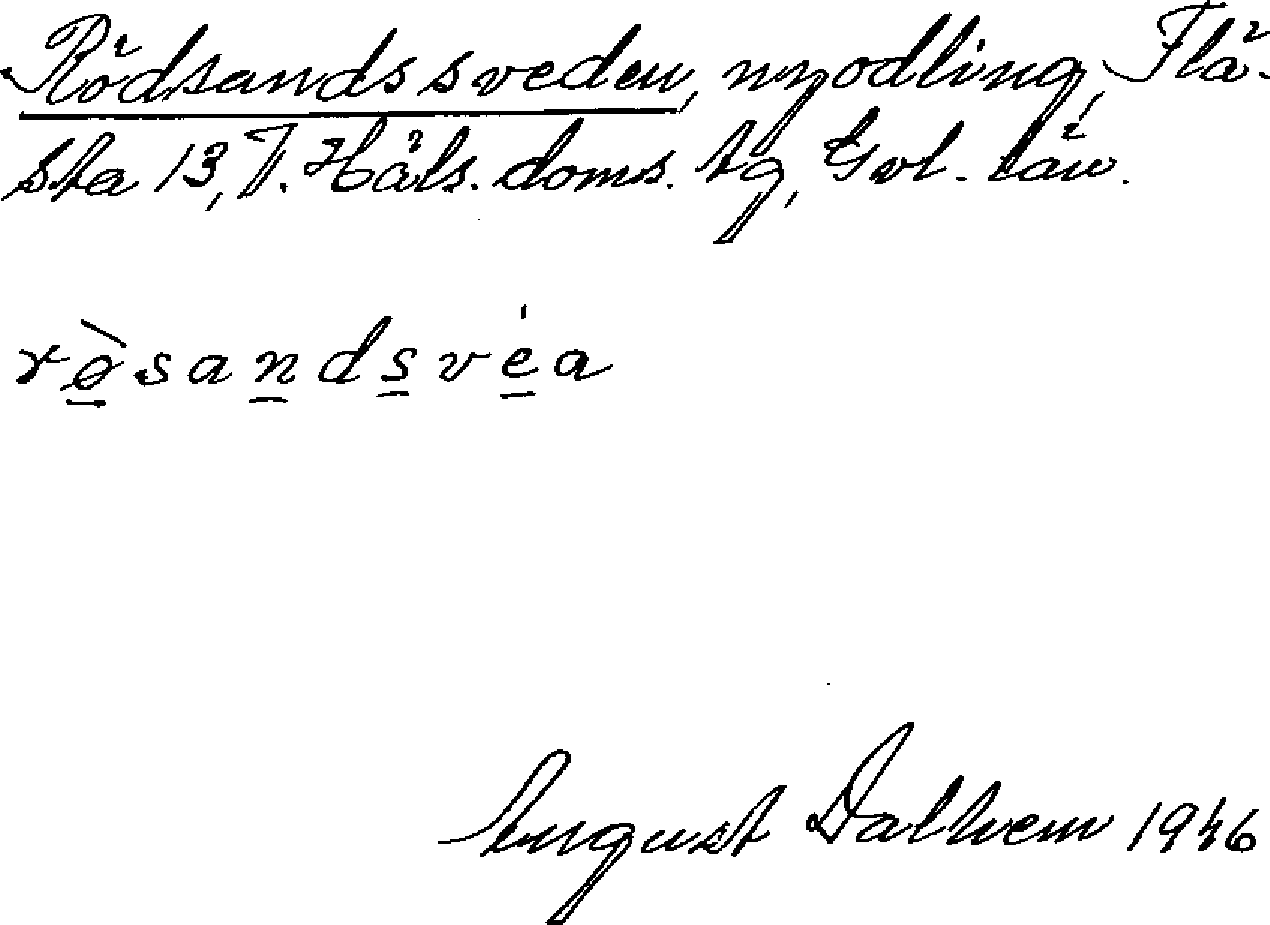 Rödsandssveden, nyodling, Flä-
sta 13, J. Häls. doms. tg, Gvl. län.
rø̱̀saṉds̱vé̱a
August Dalhem 1946